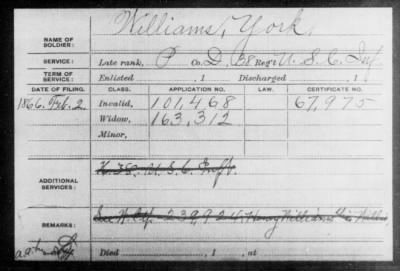 NAME OF SOLDIER: Williams, York
SERVICE: Late rank, P Co. D, 38 Reg't U. S. C. Inf.
TERM OF SERVICE: Enlisted , 1 Discharged , 1
DATE OF FILING. CLASS. APPLICATION NO. LAW. CERTIFICATE NO.
1866, Feb. 2 Invalid, 101,468 67,975
Widow, 163,312
Minor,
ADDITIONAL SERVICES: K. 38. U. S. C. Inf.
REMARKS: 239,924. Henry Williams
Died , 1 , at